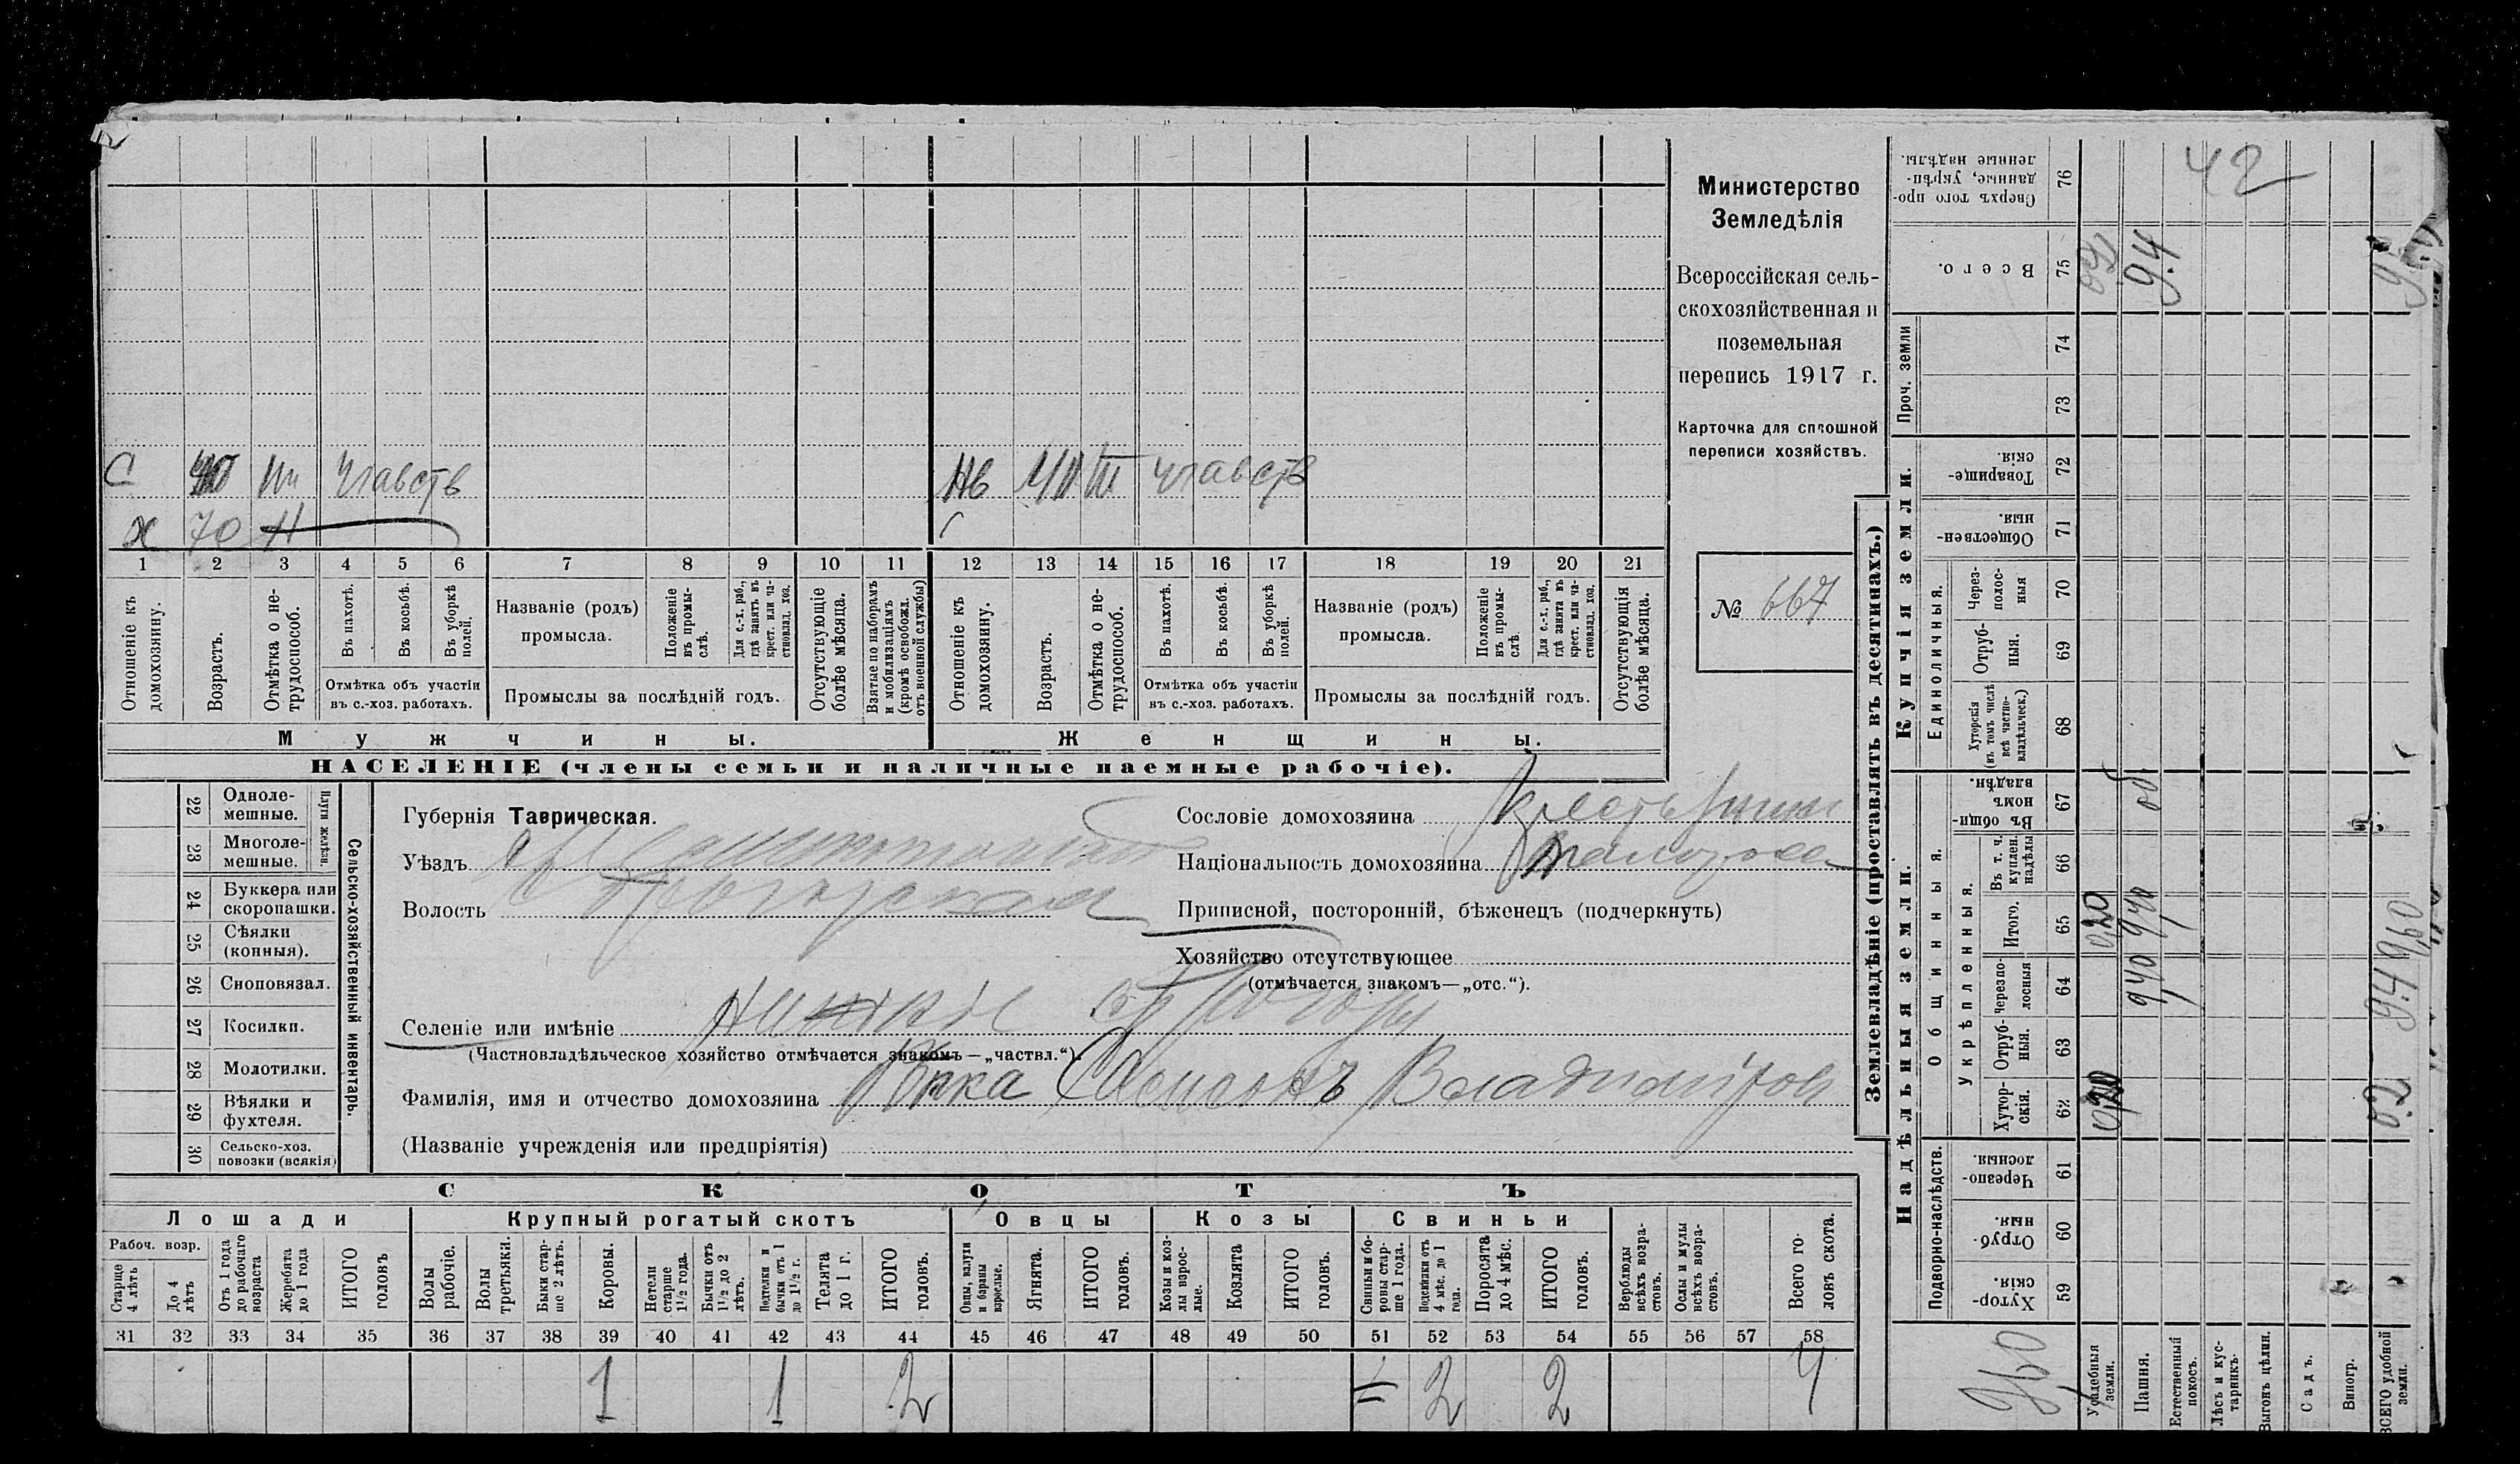 Министерство
Земледѣлія
Всероссійская сель-
скохозяйственная и
поземельная
перепись 1917 г.
Карточка для сплошной
переписи хозяйствъ.
№ 667
С 40 чѣ участв
Нв 40 участв
х 70 н
1 2 3 4 5 6 7 8 9 10 11 12 13 14 15 16 17 18 19 20 21
Отношеніе къ домохозяину.
Возрастъ.
Отмѣтка о не-трудоспособ.
Въ пахотѣ.
Въ косьбѣ.
Въ уборкѣ полей.
Отмѣтка объ участіи
въ с.-хоз. работахъ.
Названіе (родъ)
промысла.
Положеніе въ промы-слѣ.
Для с.-х. раб., гдѣ занятъ въ крест. или ча-стновлад. хоз.
Промыслы за послѣдній годъ.
Отсутствующіе болѣе мѣсяца.
Взятые по наборамъ и мобилизаціямъ (кромѣ освобожд. отъ военной службы)
Отношеніе къ домохозяину.
Возрастъ.
Отмѣтка о не-трудоспособ.
Въ пахотѣ.
Въ косьбѣ.
Въ уборкѣ полей.
Отмѣтка объ участіи
въ с.-хоз. работахъ.
Названіе (родъ)
промысла.
Положеніе въ промы-слѣ.
Для с.-х. раб., гдѣ занята въ крест. или ча-стновлад. хоз.
Промыслы за послѣдній годъ.
Отсутствующія болѣе мѣсяца.
Мужчины.
Женщины.
НАСЕЛЕНІЕ (члены семьи и наличные наемные рабочіе).
22 Одноле-мешные.
23 Многоле-мешные.
Плуги желѣзн.
24 Буккера или скоропашки.
25 Сѣялки (конныя).
26 Сноповязал.
27 Косилки.
28 Молотилки.
29 Вѣялки и фухтеля.
30 Сельско-хоз. повозки (всякія)
Сельско-хозяйственный инвентарь.
Губернія Таврическая.
Уѣздъ
Волость
Сословіе домохозяина Крестьянин
Національность домохозяина
Приписной, посторонній, бѣженецъ (подчеркнуть)
Хозяйство отсутствующее
(отмѣчается знакомъ—„отс.“).
Селеніе или имѣніе
(Частновладѣльческое хозяйство отмѣчается знакомъ—„частвл.“).
Фамилія, имя и отчество домохозяина Владиміров
(Названіе учрежденія или предпріятія)
СКОТЪ
Лошади
Крупный рогатый скотъ
Овцы
Козы
Свиньи
Рабоч. возр.
Старше 4 лѣтъ
До 4 лѣтъ
Отъ 1 года до рабочаго возраста
Жеребята до 1 года
ИТОГО головъ
Волы рабочіе.
Волы третьяки.
Быки стар-ше 2 лѣтъ.
Коровы.
Нетели старше 1½ года.
Бычки отъ 1½ до 2 лѣтъ.
Подтелки и бычки отъ 1 до 1½ г.
Телята до 1 г.
ИТОГО головъ.
Овцы, валухи и бараны взрослые.
Ягнята.
ИТОГО головъ.
Козы и коз-лы взрос-лые.
Козлята
ИТОГО головъ.
Свиньи и бо-ровы стар-ше 1 года.
Подсвинки отъ 4 мѣс. до 1 года.
Поросята до 4 мѣс.
ИТОГО головъ.
Верблюды всѣхъ возра-стовъ.
Ослы и мулы всѣхъ возра-стовъ.
Всего го-ловъ скота.
31 32 33 34 35 36 37 38 39 40 41 42 43 44 45 46 47 48 49 50 51 52 53 54 55 56 57 58
1 1 2 2 2 4
Землевладѣніе (проставлять въ десятинахъ.)
Надѣльныя земли.
Купчія земли.
Проч. земли
Подворно-наслѣдств.
Общинныя.
Укрѣпленныя.
Единоличныя.
Хутор-скія. 59
Отруб-ныя. 60
Черезпо-лосныя. 61
Хутор-скія. 62
Отруб-ныя. 63
Черезпо-лосныя 64
Итого. 65
Въ т. ч. куплен. надѣлы 66
Въ общи-номъ владѣн. 67
Хуторскія (въ томъ числѣ всѣ частно-владѣльческ.) 68
Отруб-ныя. 69
Через-полос-ныя 70
Обществен-ныя. 71
Товарище-скія. 72
73
74
Всего. 75
Сверхъ того про-данные, укрѣп-ленные надѣлы. 76
Усадебныя земли.
Пашня.
Естественный покосъ.
Лѣсъ и кус-тарникъ.
Выгонъ цѣлин.
Садъ.
Виногр.
ВСЕГО удобной земли.
42
9.4
0,20
940
940
об
0,20
0.2
9.4
9,60
960